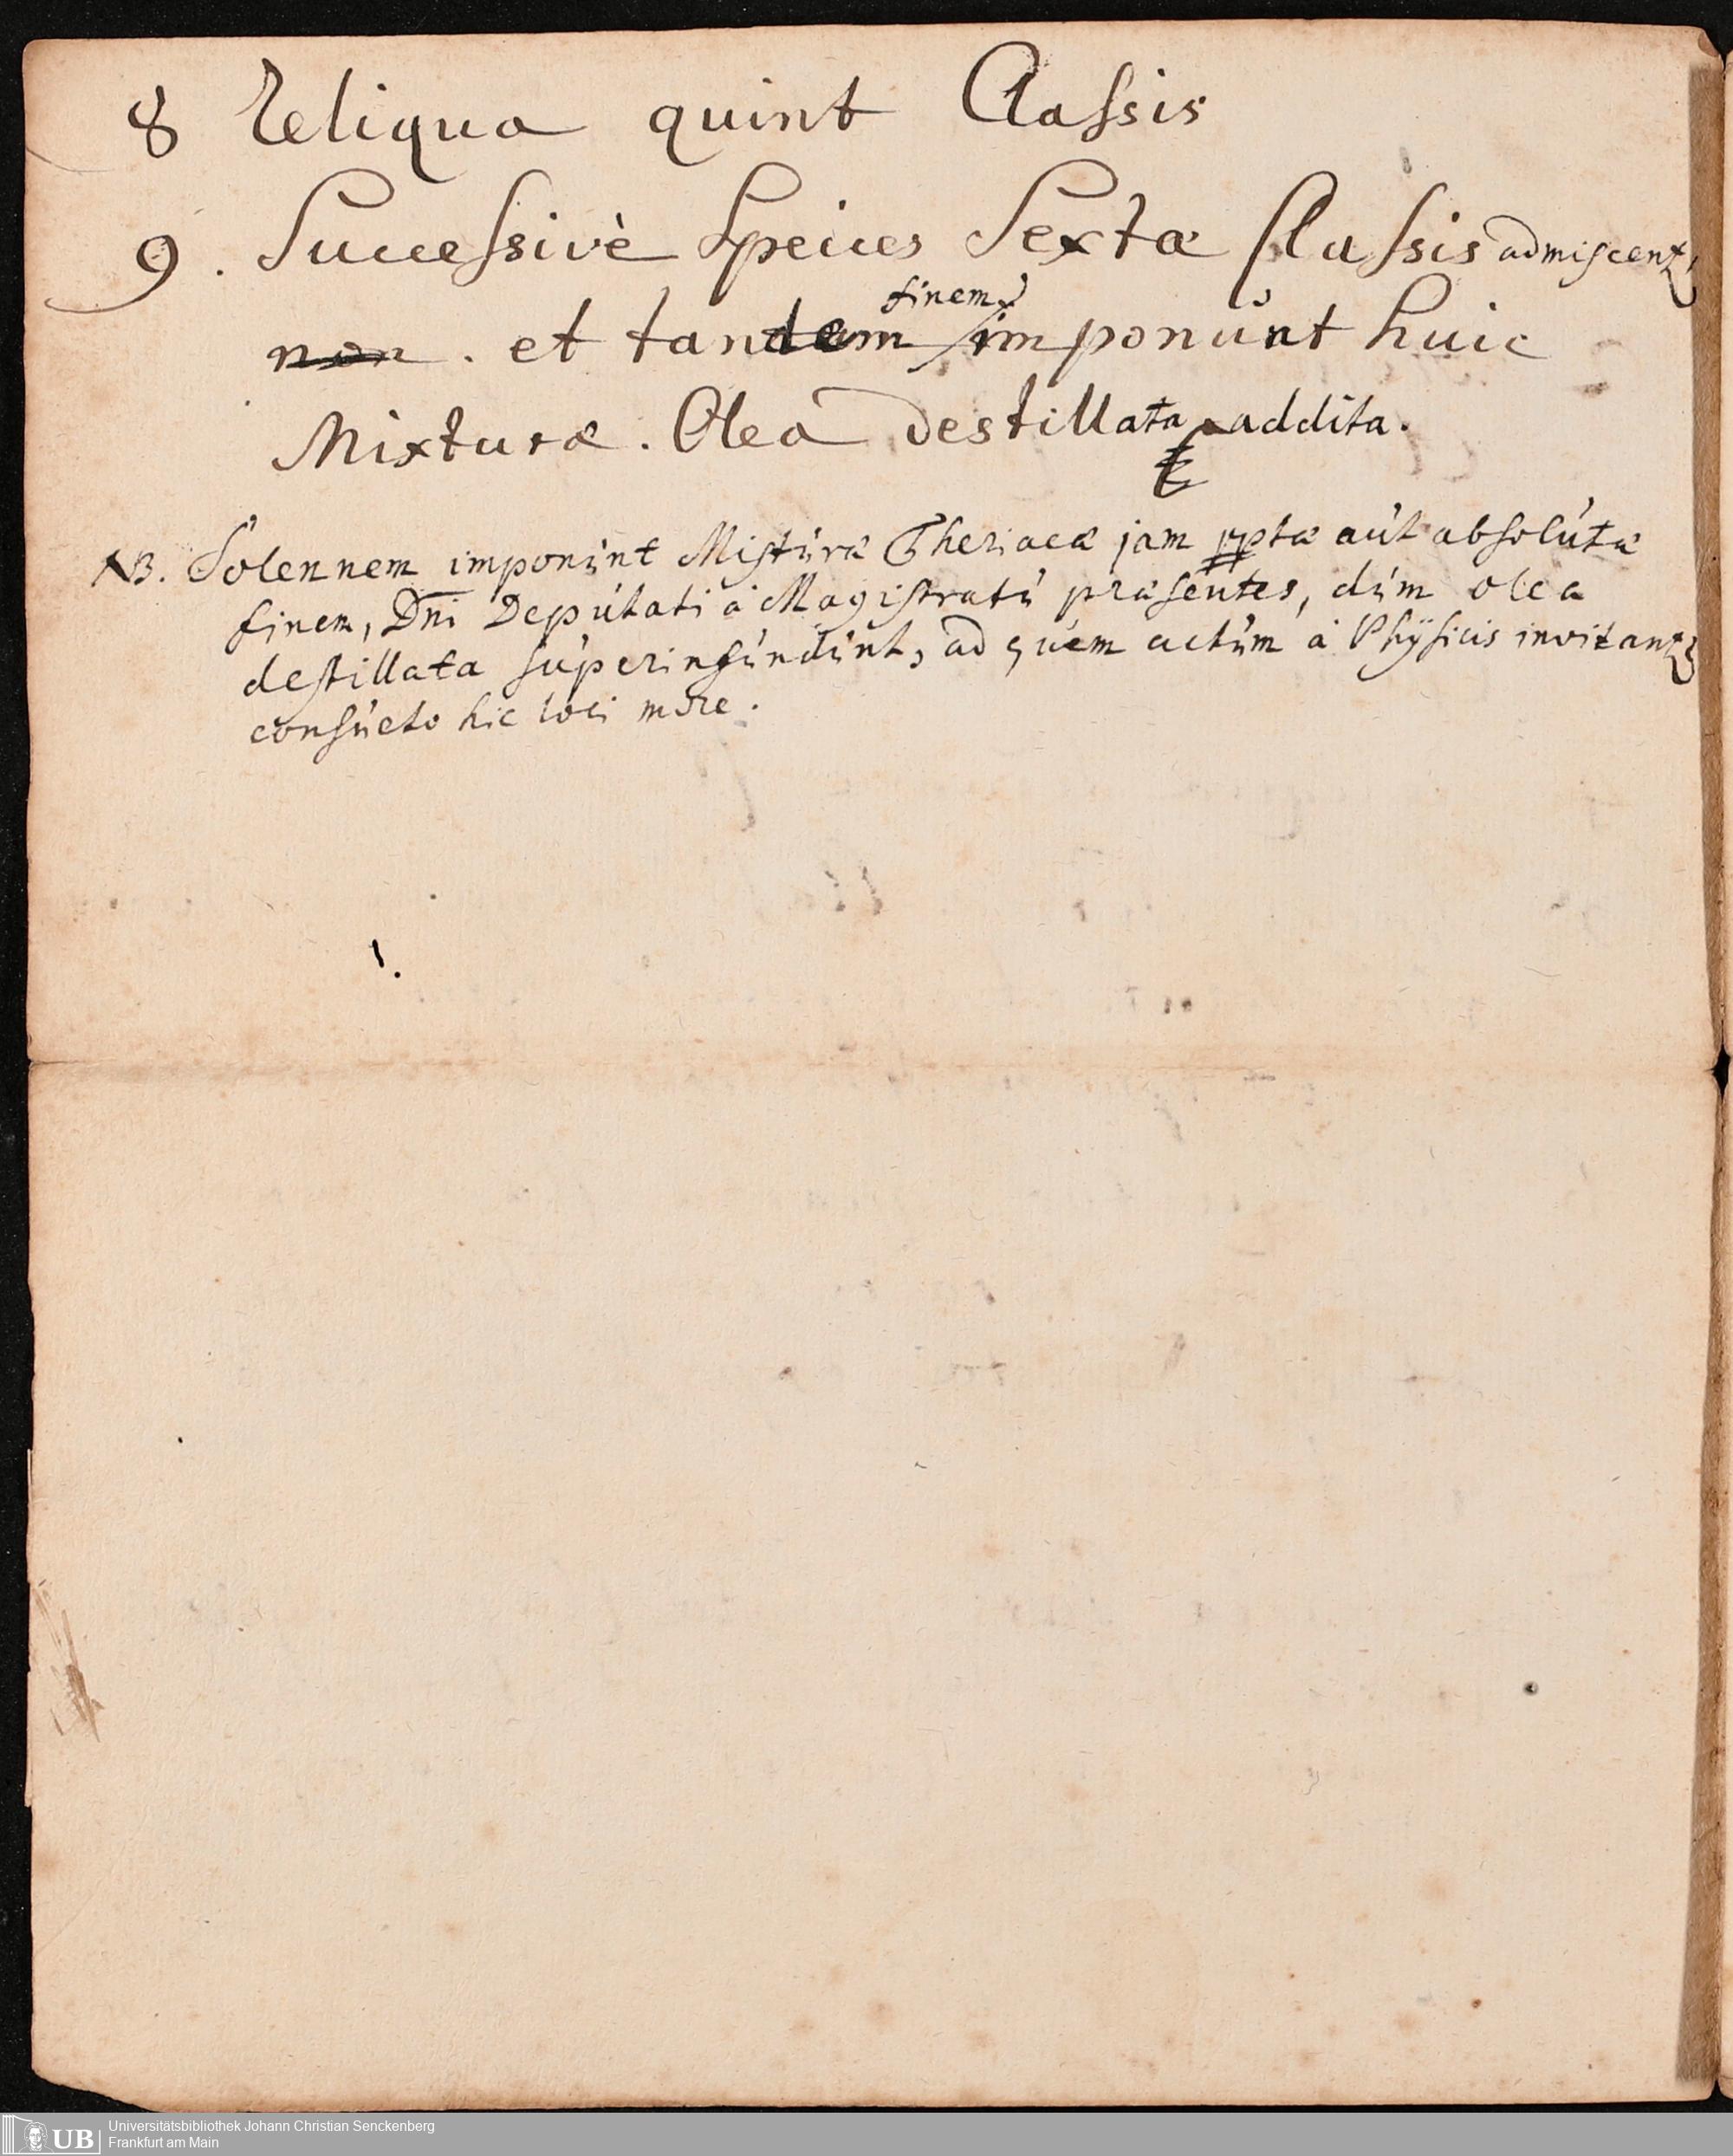 8 Reliqua quint Classis
9. Successivè Species Sextæ Classis admiscentr
finem
non. et tandem imponunt huic
Mixturæ. Olea destillata addita.
NB. Solennem imponunt Misturæ Theriacæ jam ppta aut absolutæ
finem, Dni Deputati à Magistratu præsentes, dum olea
destillata superinfundunt, ad quem actum à Physicis invitantr
consueto hic loci more.
Universitätsbibliothek Johann Christian Senckenberg
Frankfurt am Main
UB